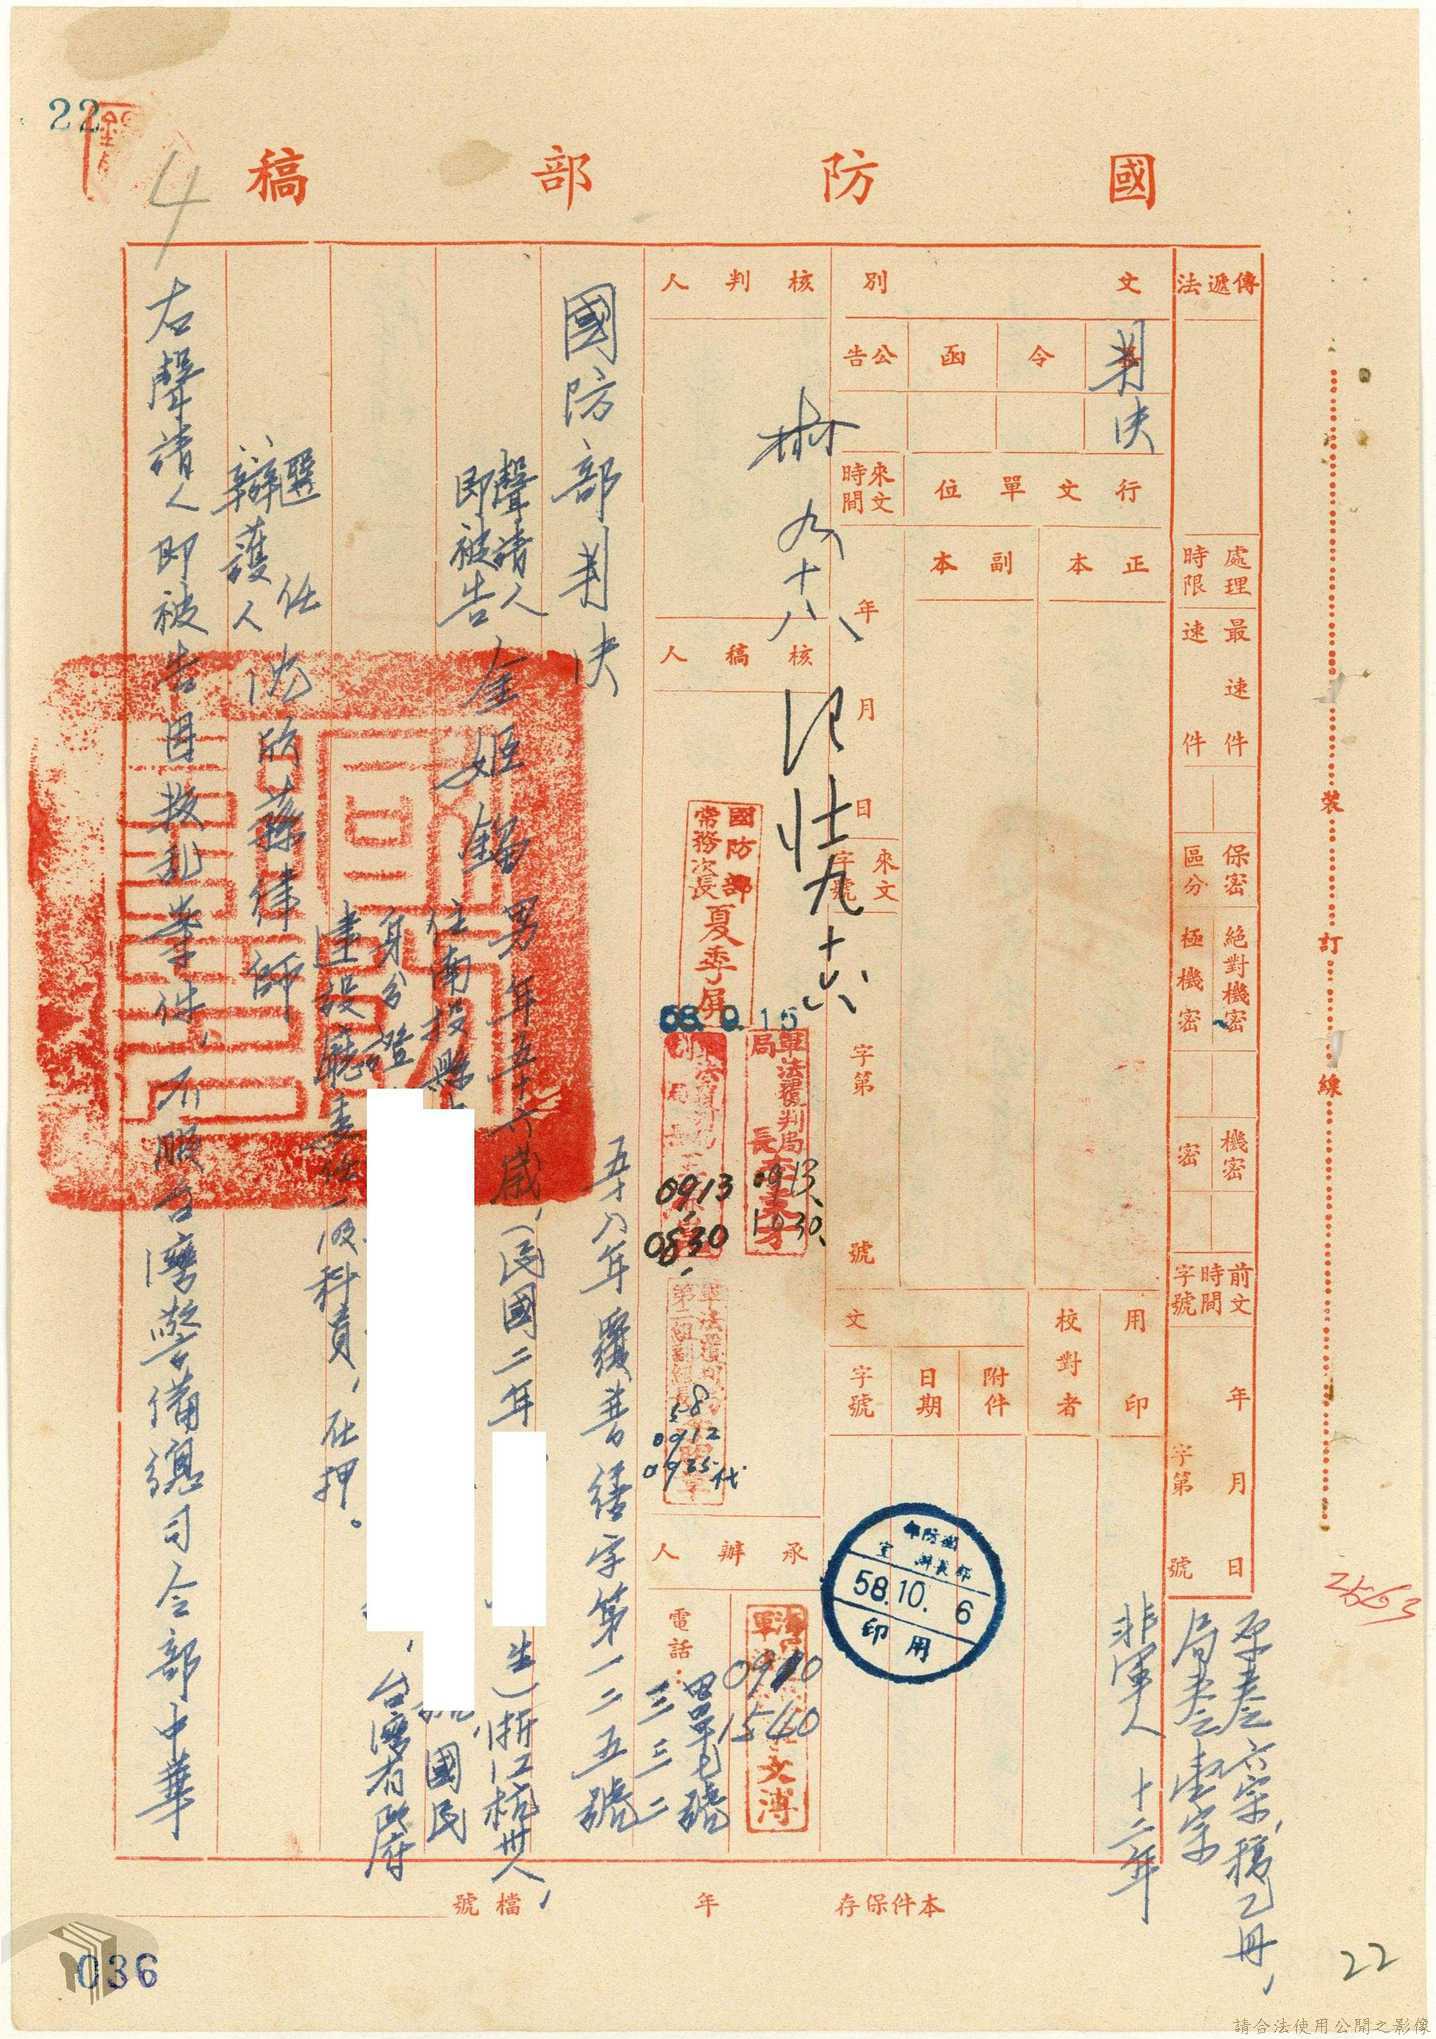 國防部稿
22
4
傳遞法
處理時限
最速件
速件
保密區分
絕對機密
極機密
機密
密
前文時間字號
年月日
字第號
文別
判決
令
函
公告
行文單位
正本
副本
來文時間
年
月
日
來文字號
字第
號
用印
校對者
文
附件
日期
字號
核判人
核稿人
國防部常務次長夏季屏
58.9.15
軍法覆判局局長
0913
1030
0913
0830
58
0912
0935代
承辦人
0910
1540
電話:
三三三二
國防部
部長辦公室
58.10.6
用印
九十八
國防部判決
五十八年覆普
字第一二五號
聲請人
即被告
金姬鎦
男年五十六歲,(民國二年
生)浙江杭州人,
住南投縣
國民
身分證
,台灣省政府
建設廳委任一級科員,在押。
選任
辯護人
沈欣蓀律師
右聲請人即被告因叛亂案件,不服台灣警備總司令部中華
非軍人
十二年
本件保存
年
檔號
裝
訂
線
2563
22
036
請合法使用公開之影像